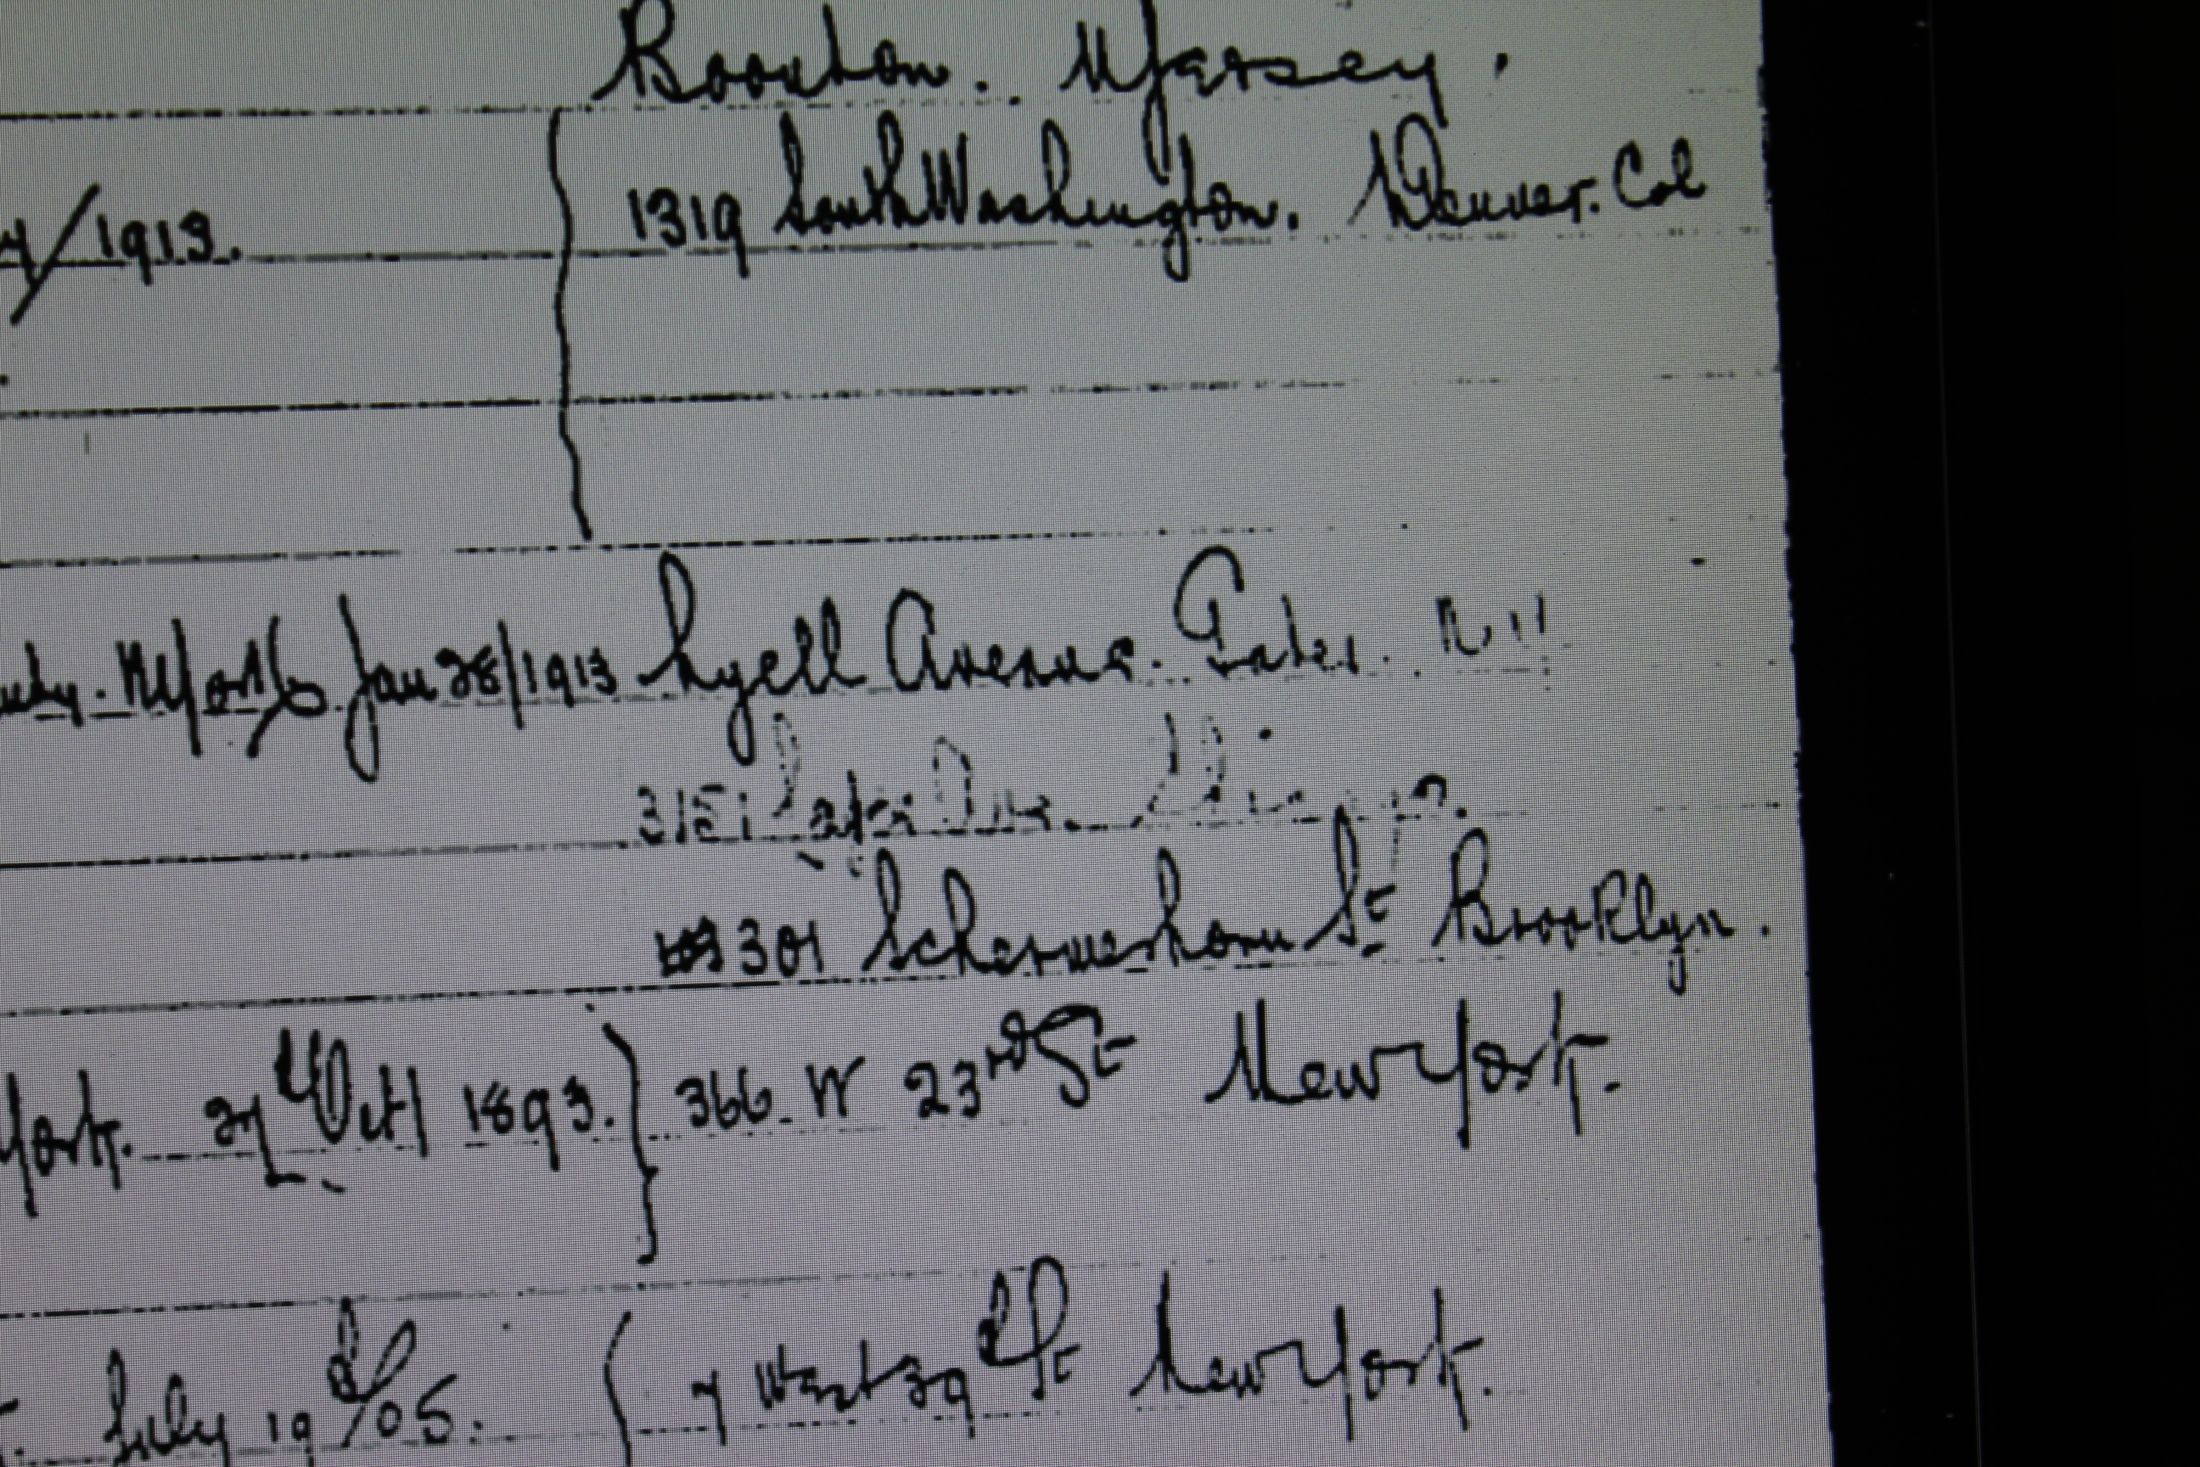 Boonton. N Jersey.
4/1913. 1319 South Washington. Denver. Col
Jan 28/1913 Lyell Avenue. Gates. N Y
3151 Lake
301 Schermerhorn St Brooklyn.
York. Oct 1893. 366. W 23rd St New York.
July 19 /05. 7 West 39 St New York.